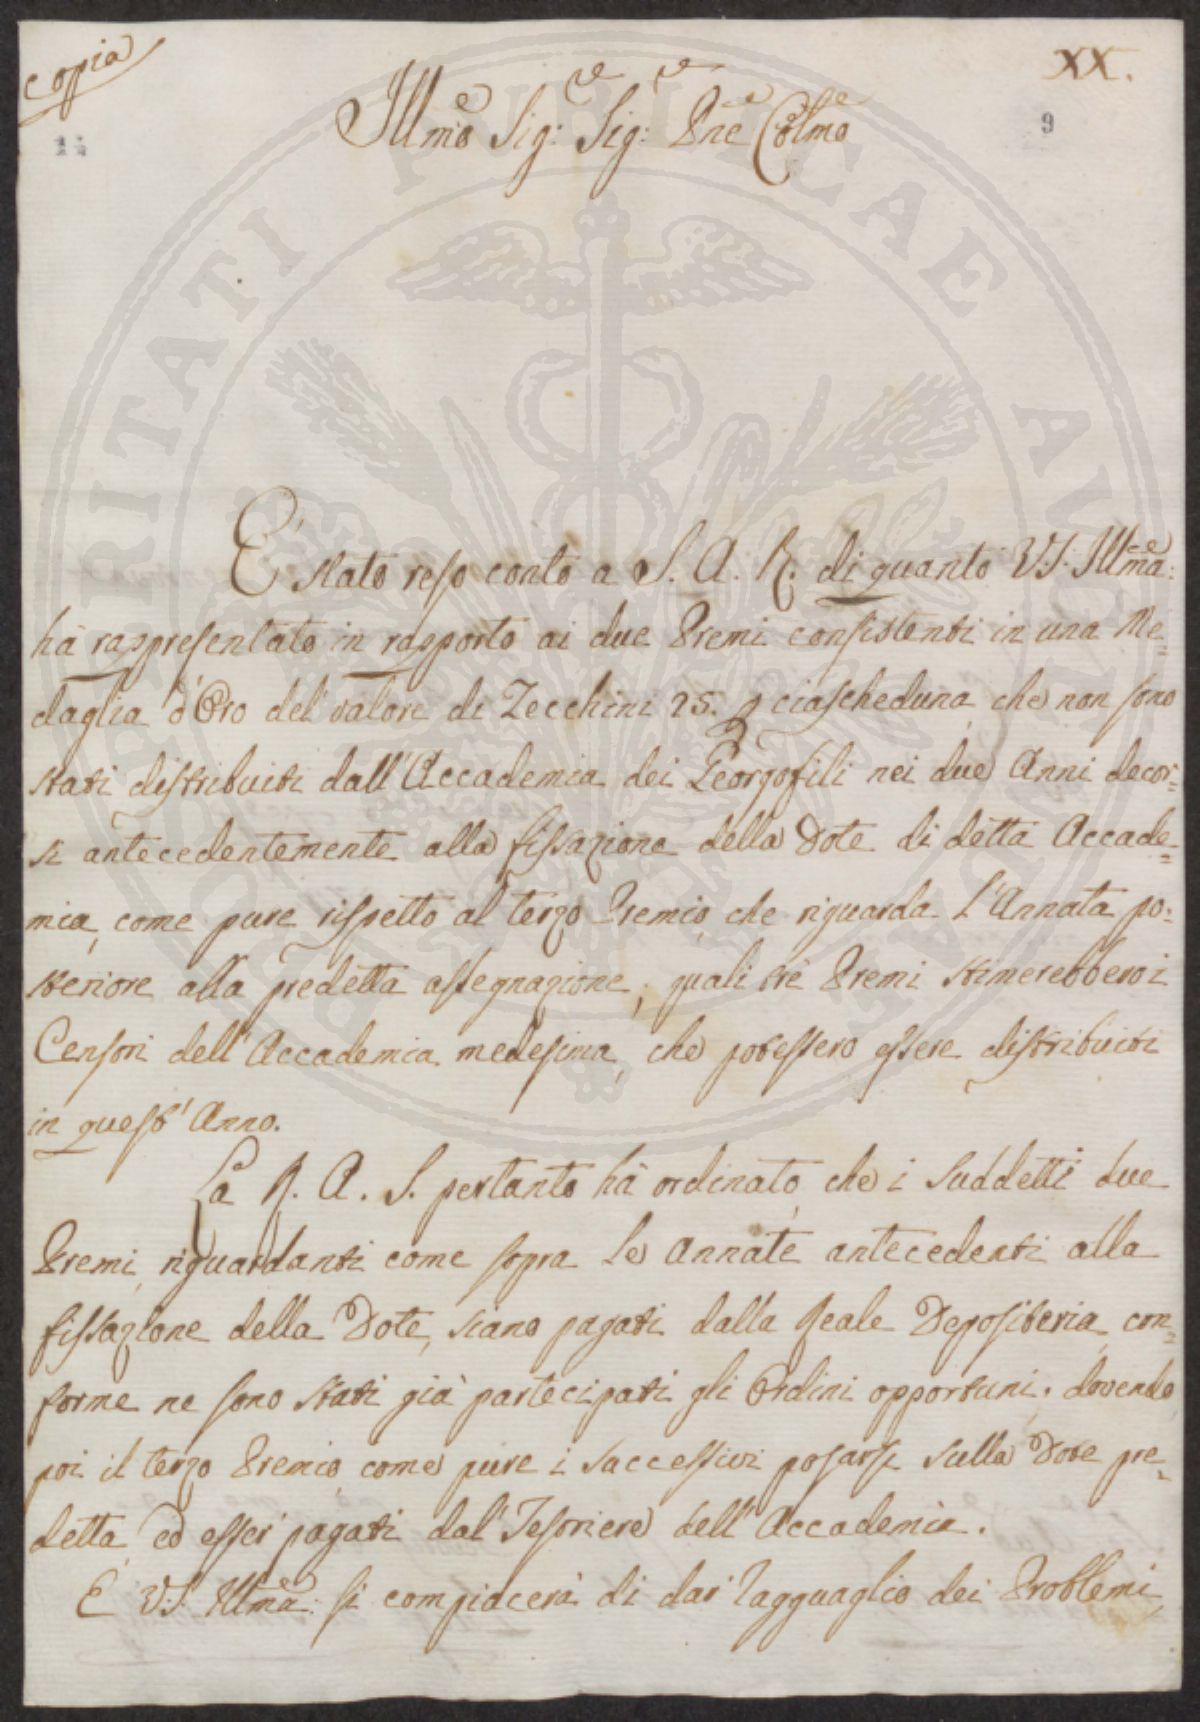 copia
XX.
14
9
Illmo Sig:re Sig:re Pne Colmo
E' stato reso conto a S. A. R. di quanto V.S. Illma:
hà rappresentato in rapporto ai due Premi consistenti in una Me=
daglia d'Oro del valore di Zecchini 25. p ciascheduna, che non sono
stati distribuiti dall'Accademia dei Georgofili nei due Anni decor=
si antecedentemente alla fissazione della Dote di detta Accade=
mia, come pure rispetto al terzo Premio, che riguarda l'Annata po=
steriore alla predetta assegnazione; quali trè Premi stimerebbero i
Censori dell'Accademia medesima, che potessero essere distribuiti
in quest'Anno.
La R. A. S. pertanto hà ordinato, che i suddetti due
Premi, riguardanti come sopra le Annate antecedenti alla
fissazione della Dote, siano pagati dalla Reale Depositeria, con=
forme ne sono stati già partecipati gli Ordini opportuni, dovendo
poi il terzo Premio, come pure i successivi posarsi sulla Dote pre=
detta, ed esser pagati dal Tesoriere dell'Accademia.
E V.S. Illma: si compiacerà di dar ragguaglio dei Problemi,